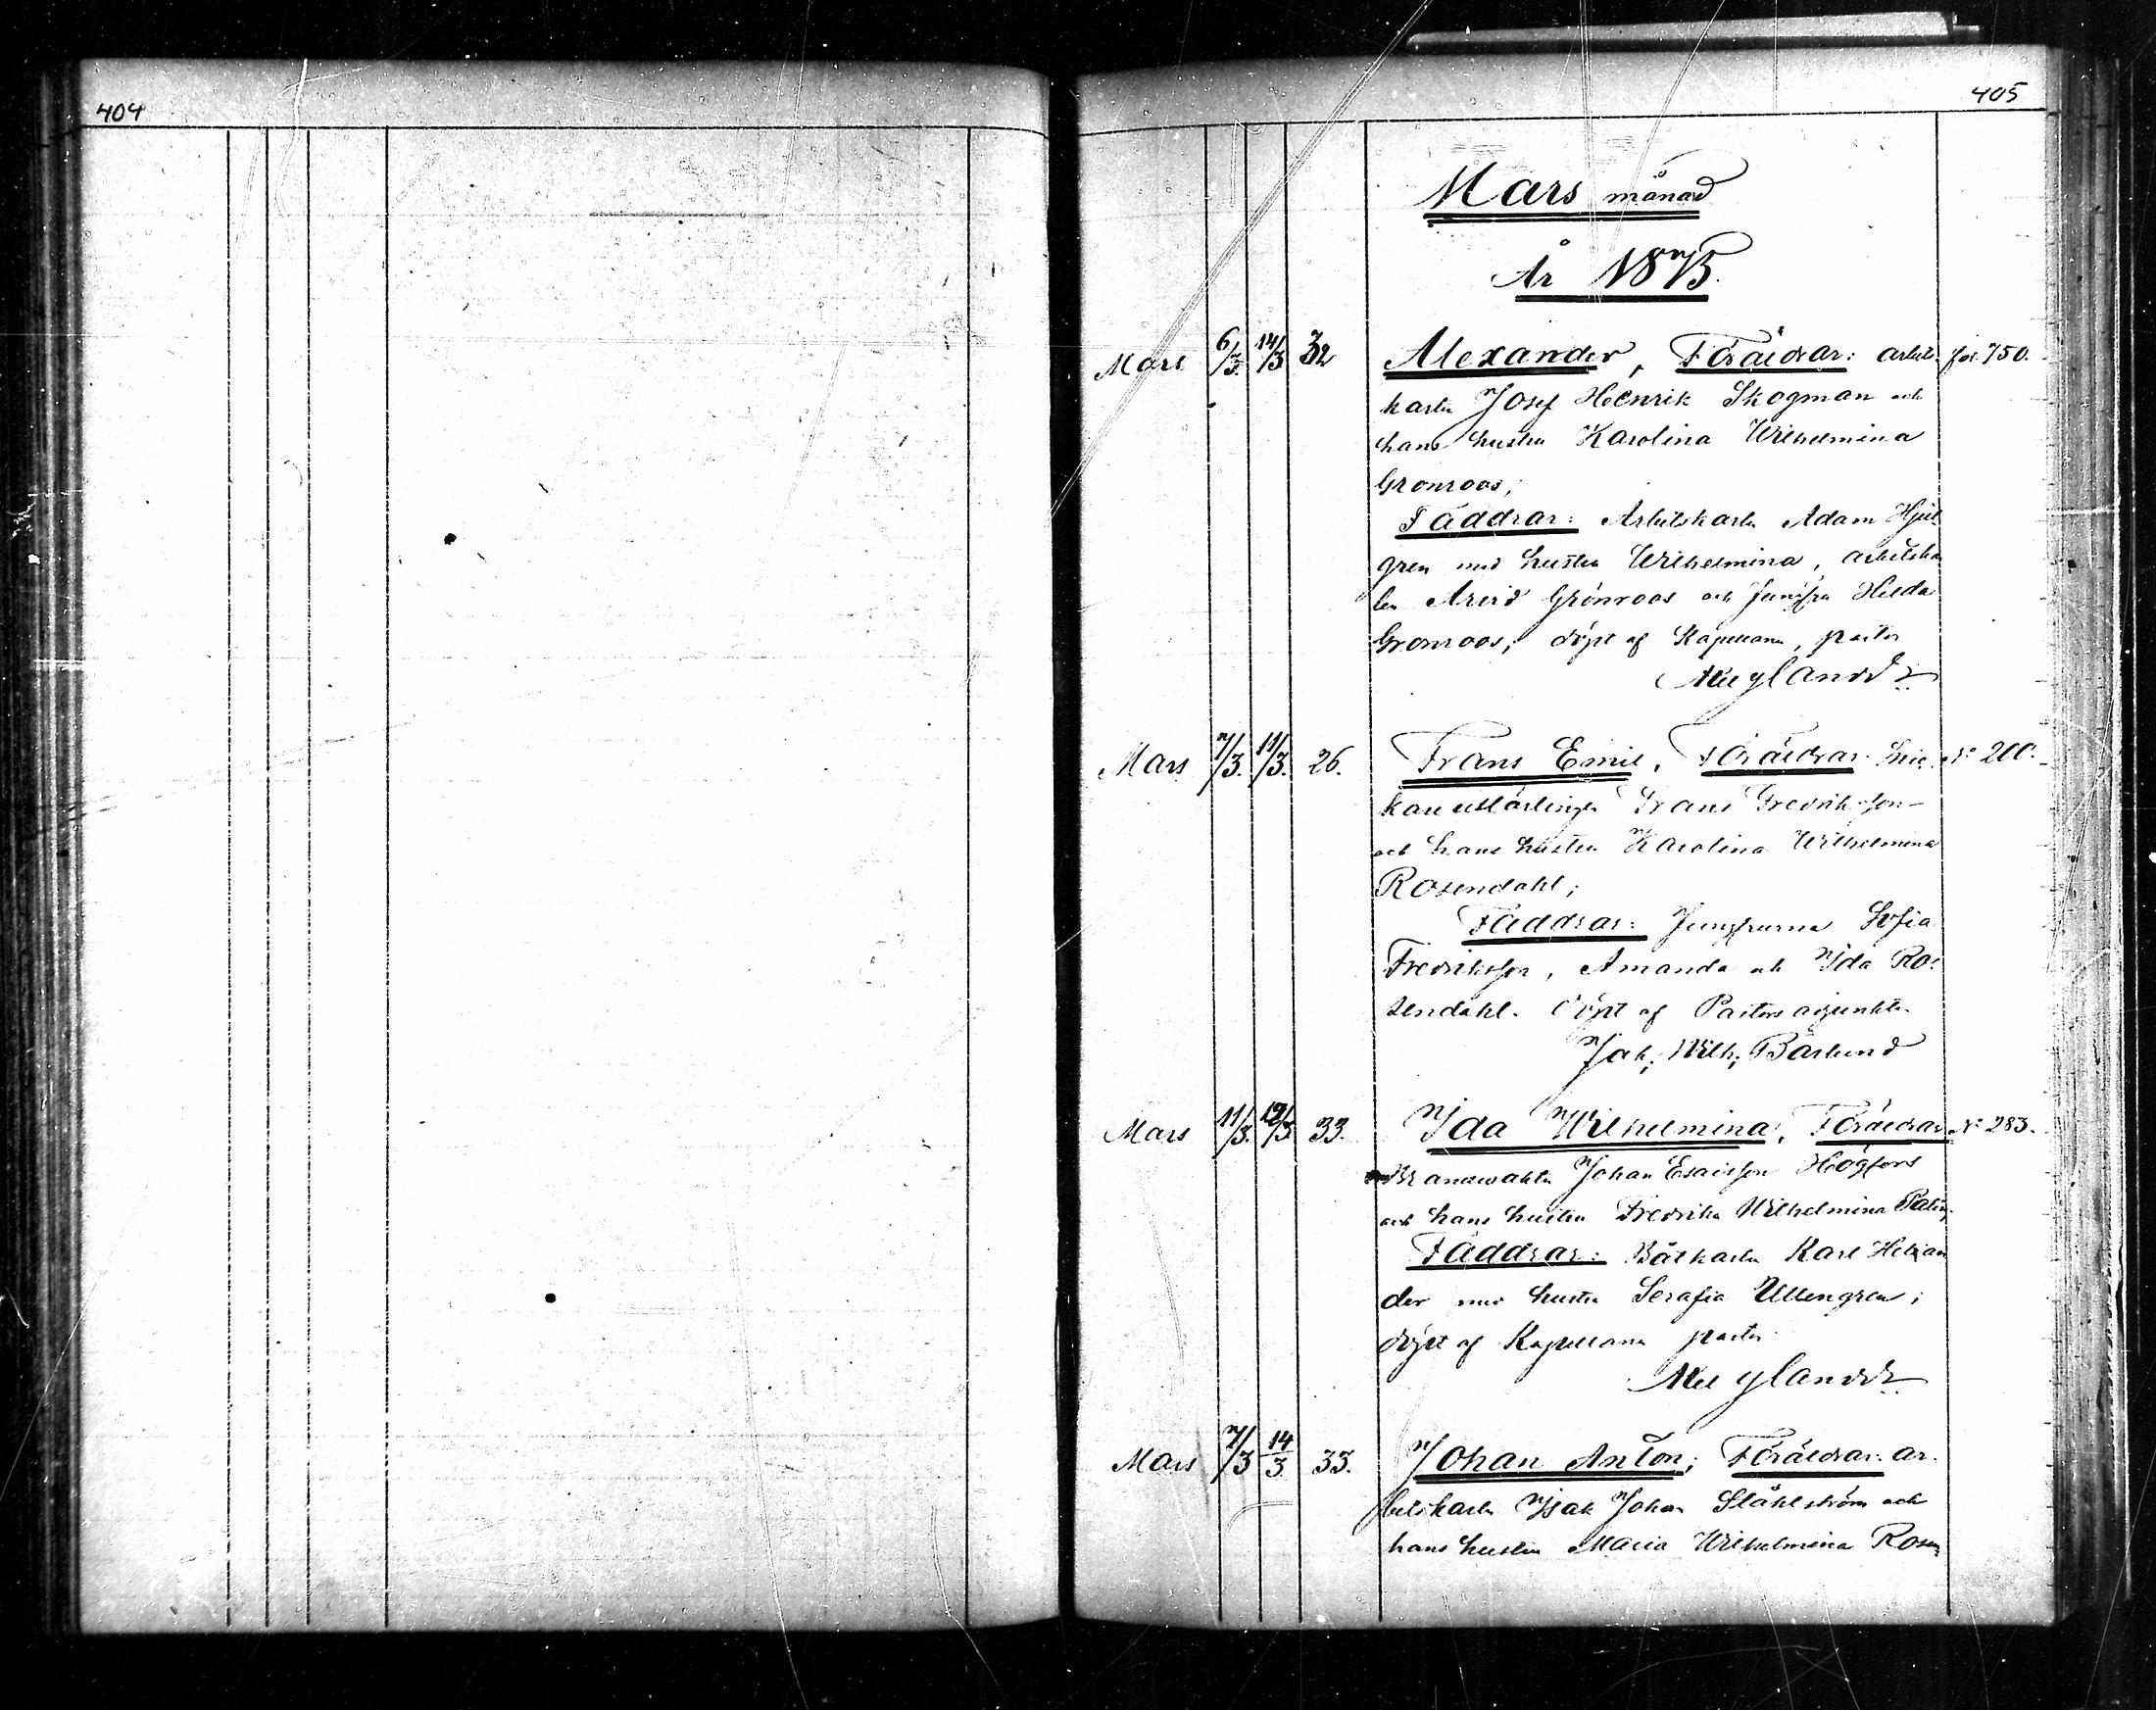 404
405
Mars månad
År 1875.
Mars 6/3. 14/3 32 Alexander, Föräldrar: arbets- fol. 750.
karln Josef Henrik Skogman och
hans hustru Karolina Wilhelmina
Grönroos;
Faddrar: Arbetskarln Adam Hjel
gren med hustru Wilhelmina, arbetska
len Arvid Grönroos och Jungfru Hilda
Grönroos; döpt af Kapellanen, pastor
Frans Emil, Föräldrar: Snic- No 200.
Mars 7/3. 11/3. 26.
karelärlingen Frans Fredriksson
och hans hustru Karolina Wilhelmina
Rosendahl;
Faddrar: Jungfrurna Sofia
Fredriksson, Amanda och Ida Ro-
sendahl. Döpt af Pastors adjunkten
Jak. Wilh. Bärlund
Mars 11/3. 33. Ida Wilhelmina, Föräldrar No 283.
Brandwakten Johan Esaisson Högfors
och hans hustru Fredrika Wilhelmina
Faddrar: Båtkarln Karl Helian
der med hustru Serafia Ullengren;
döpt af Kapellanen pastor
Mars 7/3 14/3 33. Johan Anton; Föräldrar: ar-
betskarln Isak Johan Ståhlström och
hans hustru Maria Wilhelmina Rosen